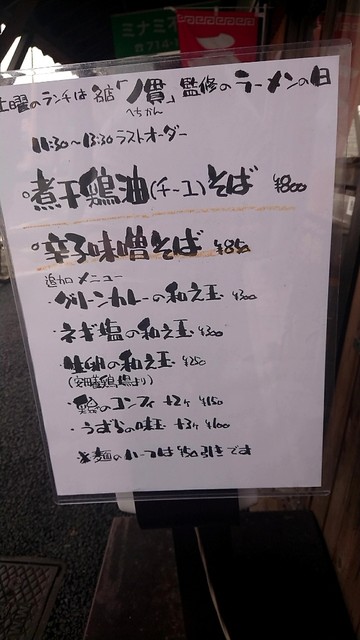 ミナミ
土曜のランチは 名店「ノ貫」監修のラーメンの日
へちかん
11:30〜13:30 ラストオーダー
煮干鶏油(チーユ)そば ¥800
辛子味噌そば ¥850
追加メニュー
・グリーンカレーの和え玉 ¥300
・ネギ塩の和え玉 ¥300
・生卵の和え玉 ¥250
・のコンフィ +2ヶ ¥150
・うずらの味玉 +3ヶ ¥100
麺のハーフは ¥50引きです